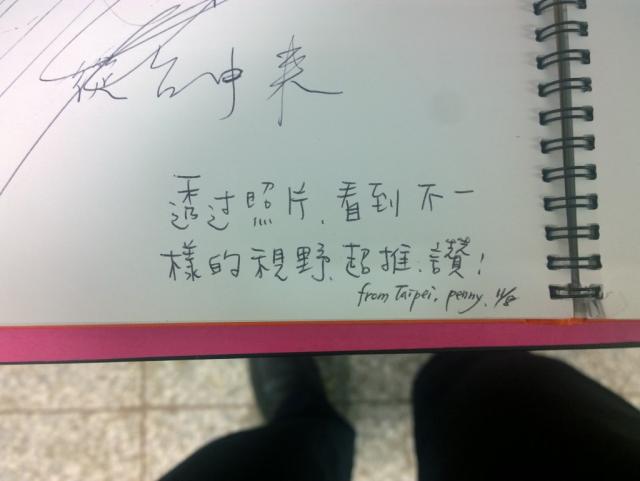 從台中来
透过照片,看到不一
樣的視野,超推,讚!
from Taipei, penny. 11/8